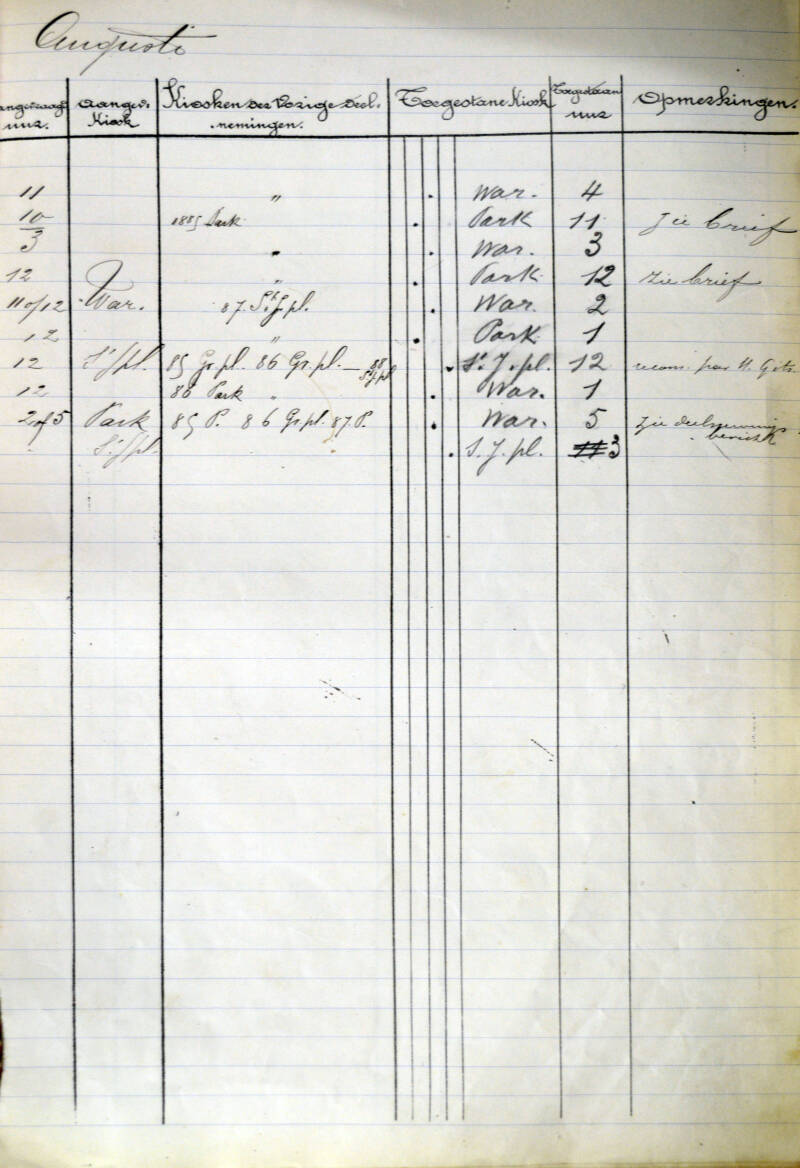 Augusti
Aangevraagd uur. Aangev. Kiosk Kiosken der Vorige Deelnemingen. Toegestane Kiosk Toegestaan uur Opmerkingen.
11 " War. 4
10 1885 Park . Park 11 Zie brief
3 " War. 3
12 " Park 12 Zie brief
11 of 12 War. 87. St. J. pl. War. 2
12 " Park 1
12 St. J. pl. 85 Gr. pl. 86 Gr. pl. — 88 St. J. pl. St. J. pl. 12 recom. par M. Gits
12 86 Park " War. 1
2 of 5 Park 85 P. 86 Gr. pl. 87 P. War. 5 Zie deelnemings-
St. J. pl. S. J. pl. 11 3 bericht